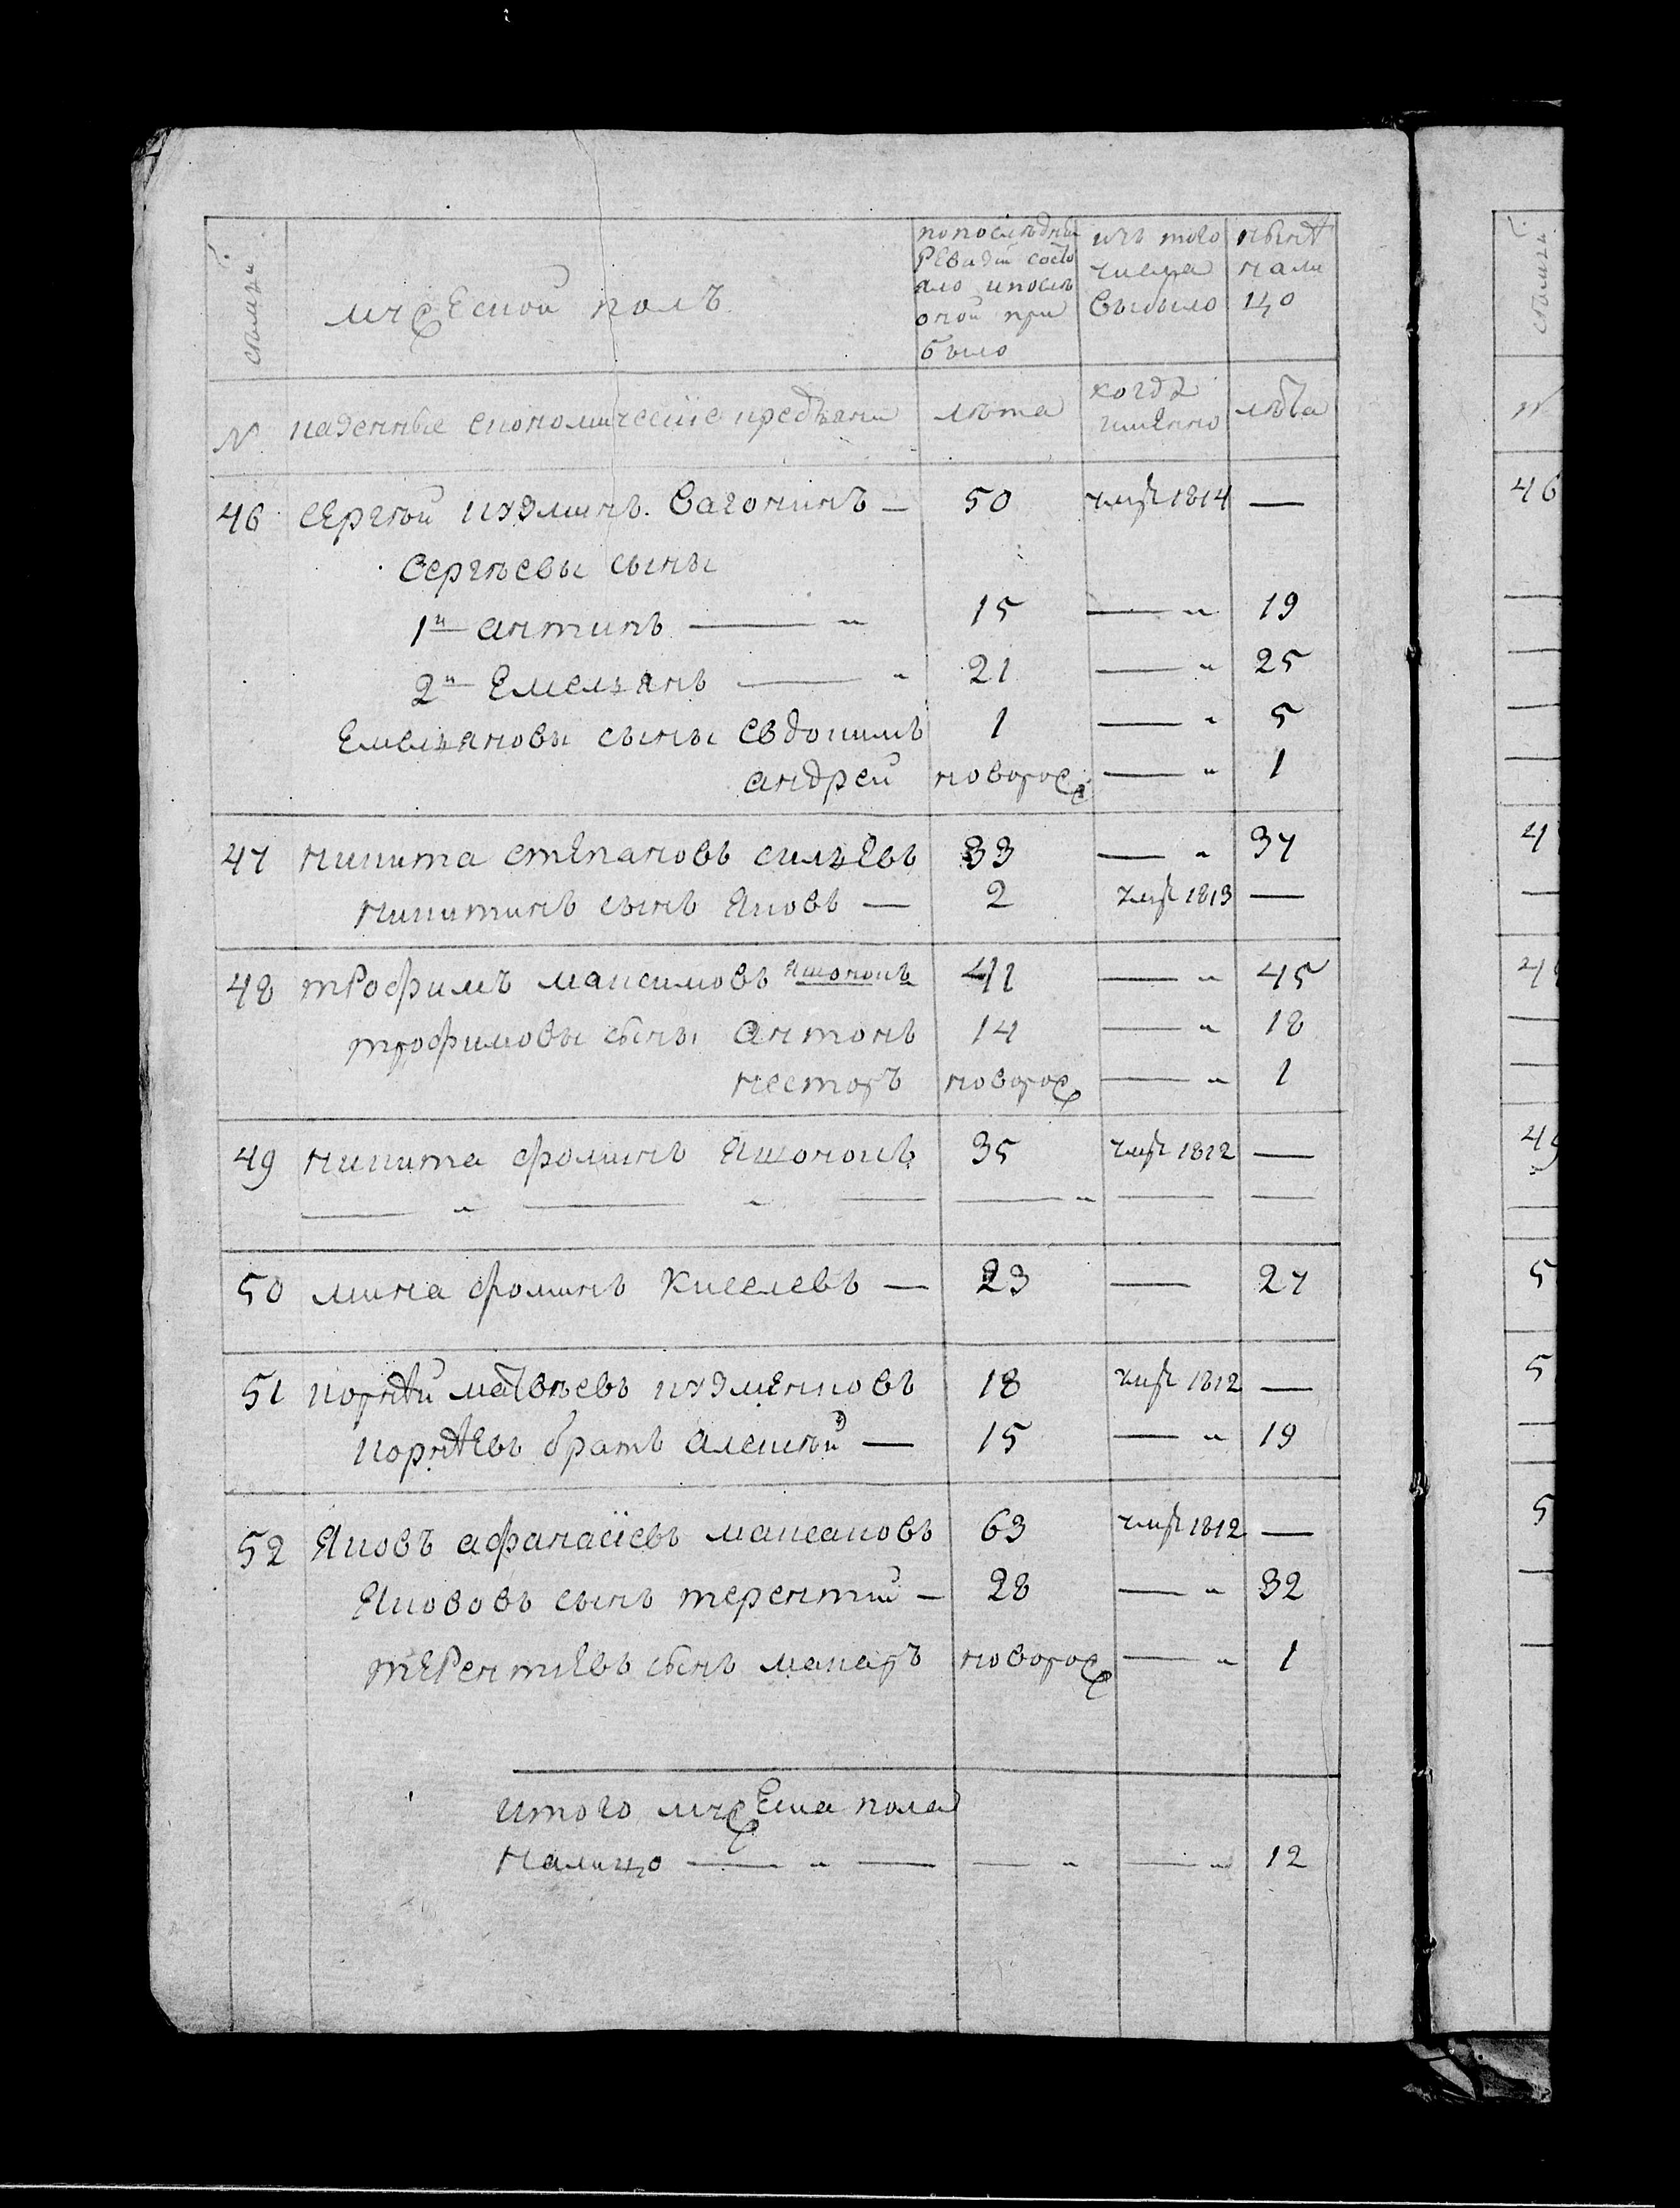 семьи
мужеской полъ
попоследней
Ревизии состо
яло ипосле
оной при
было
изъ того
числа
выбыло
нынѣ
нали
цо
№
казенные економическiе крестьяни
лѣта
когда
имянно
лѣта
46 сергѣй кузминъ. Вагонинъ — 50 умре 1814 —
Сергѣевы сыны
1й антипъ — " 15 — " 19
2й Емельянъ — " 21 — " 25
Емельяновы сыны Евдокимъ 1 — " 5
андрей новорож — " 1
47 никита степановъ сильевъ 33 — " 37
никитинъ сынъ Яковъ — 2 умре 1813 —
48 трофимъ максимовъ Яшонокъ 41 — " 45
трофимовы сыны антонъ 14 — " 18
несторъ новорож — " 1
49 никита фоминъ Яшонокъ 35 умре 1812 —
— " — " — — " — —
50 мина фоминъ Киселевъ — 23 — 27
51 корнѣй матвѣевъ кузменковъ 18 умре 1812 —
корнѣевъ братъ алексѣй — 15 — " 19
52 Яковъ афанасiевъ максаковъ 63 умре 1812 —
Якововъ сынъ терентий — 28 — " 32
терентiевъ сынъ макаръ новорож — " 1
итого мужеска пола
налицо — " — — " — " 12
семьи
№
46
4
4
49
5
5
5